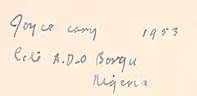 Joyce Cary 1953
Late A.D.O Borgu
Nigeria